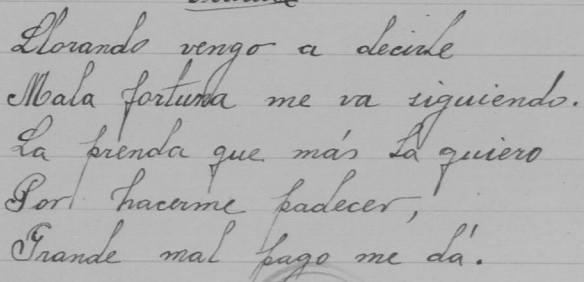 Llorando vengo a decirle
Mala fortuna me va siguiendo.
La prenda que más la quiero
Por hacerme padecer,
Grande mal pago me dá.